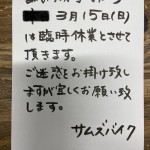 3月15日(日)
は臨時休業とさせて
頂きます。
ご迷惑をお掛け致し
ますが宜しくお願い致
します。
サムズバイク